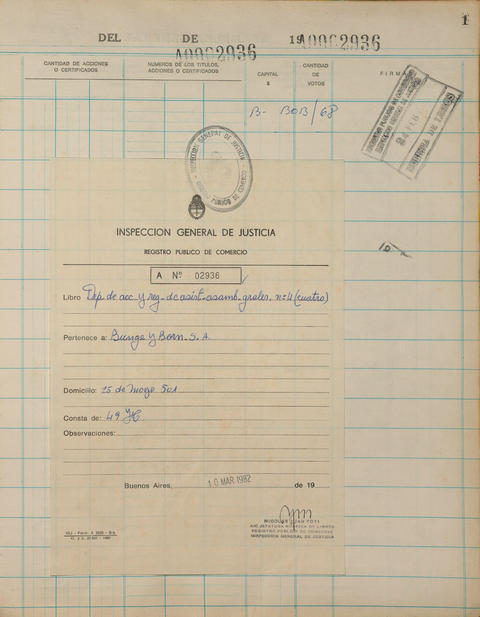 1
DEL DE 19
A0002936 A0002936
CANTIDAD DE ACCIONES O CERTIFICADOS
NUMEROS DE LOS TITULOS, ACCIONES O CERTIFICADOS
CAPITAL $
CANTIDAD DE VOTOS
FIRMA
B- BOB/68
INSPECCION GENERAL DE JUSTICIA
PUBLICO DE COMERCIO
INSPECCION GENERAL DE JUSTICIA
REGISTRO PUBLICO DE COMERCIO
A Nº 02936
Libro Dep. de acc y reg. de asist. asamb. grales. nº 4 (cuatro)
Pertenece a: Bunge y Born S.A.
Domicilio: 25 de Mayo 501
Consta de: 49
Observaciones:
Buenos Aires, 10 MAR 1982 de 19
REGISTRO PUBLICO DE COMERCIO
INSPECCION GENERAL DE JUSTICIA